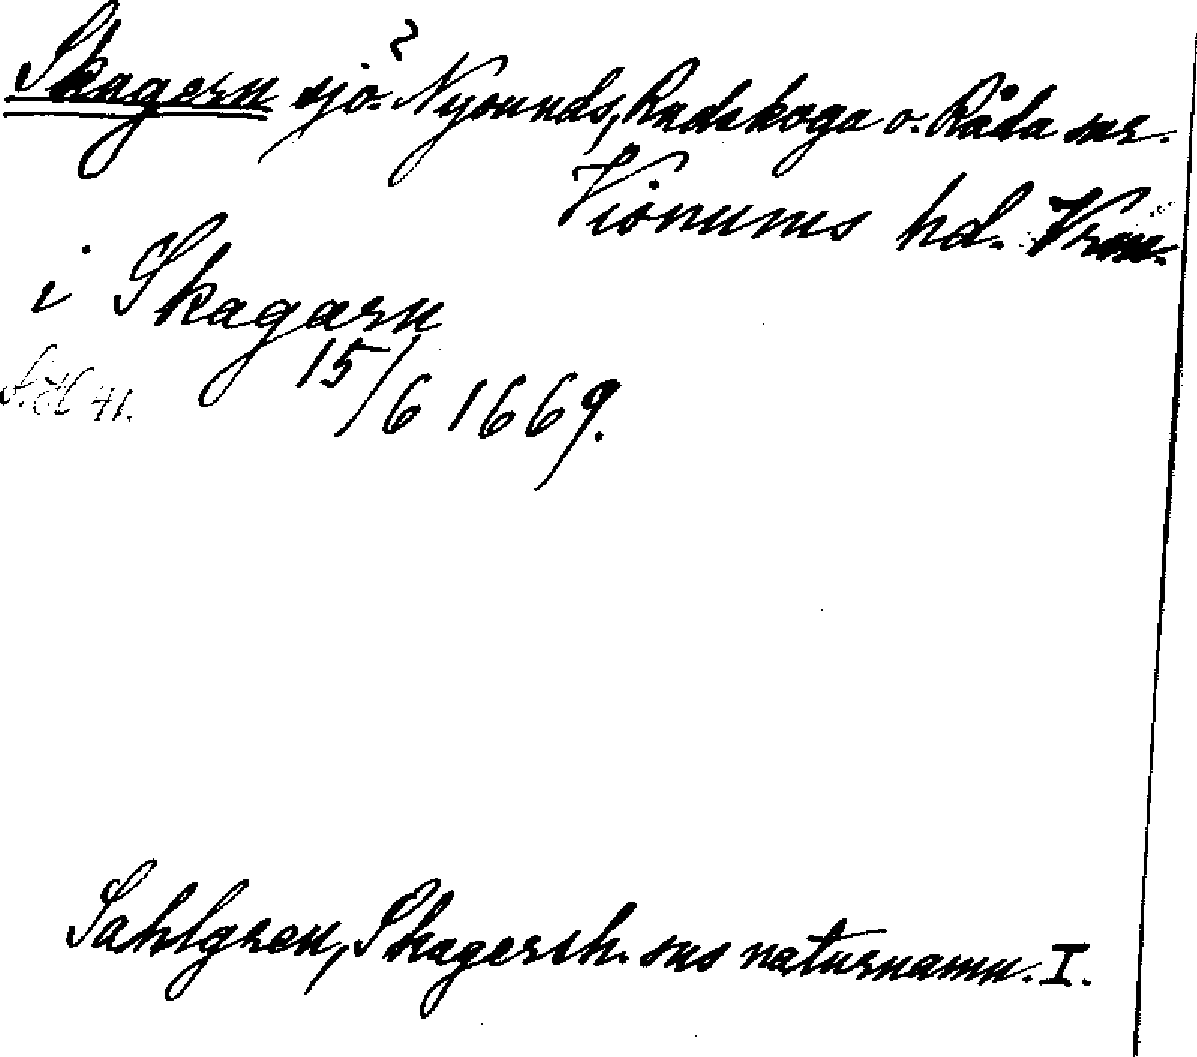 Skagern sjö. 2 Nysunds, Rudskoga o. Råda snr.
Visnums hd. Vrml.
i Skagarn
15/6 1669.
Sahlgren, Skagersh. sns naturnamn. I.